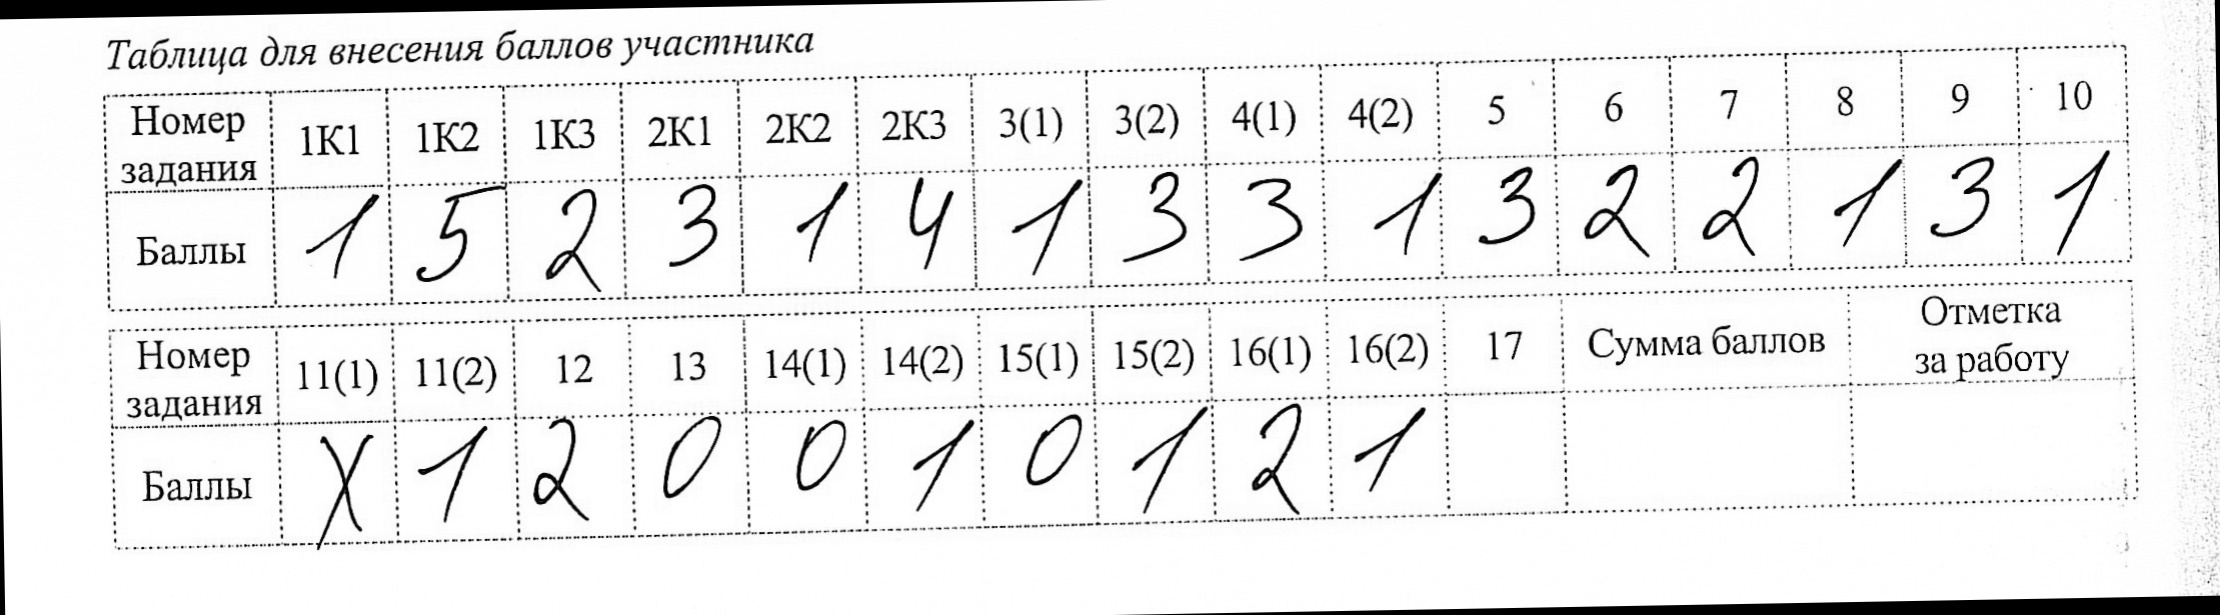 Таблица для внесения баллов участника
Номер задания 1К1 1К2 1К3 2К1 2К2 2К3 3(1) 3(2) 4(1) 4(2) 5 6 7 8 9 10
Баллы 1 5 2 3 1 4 1 3 3 1 3 2 2 1 3 1
Номер задания 11(1) 11(2) 12 13 14(1) 14(2) 15(1) 15(2) 16(1) 16(2) 17 Сумма баллов Отметка за работу
Баллы X 1 2 0 0 1 0 1 2 1